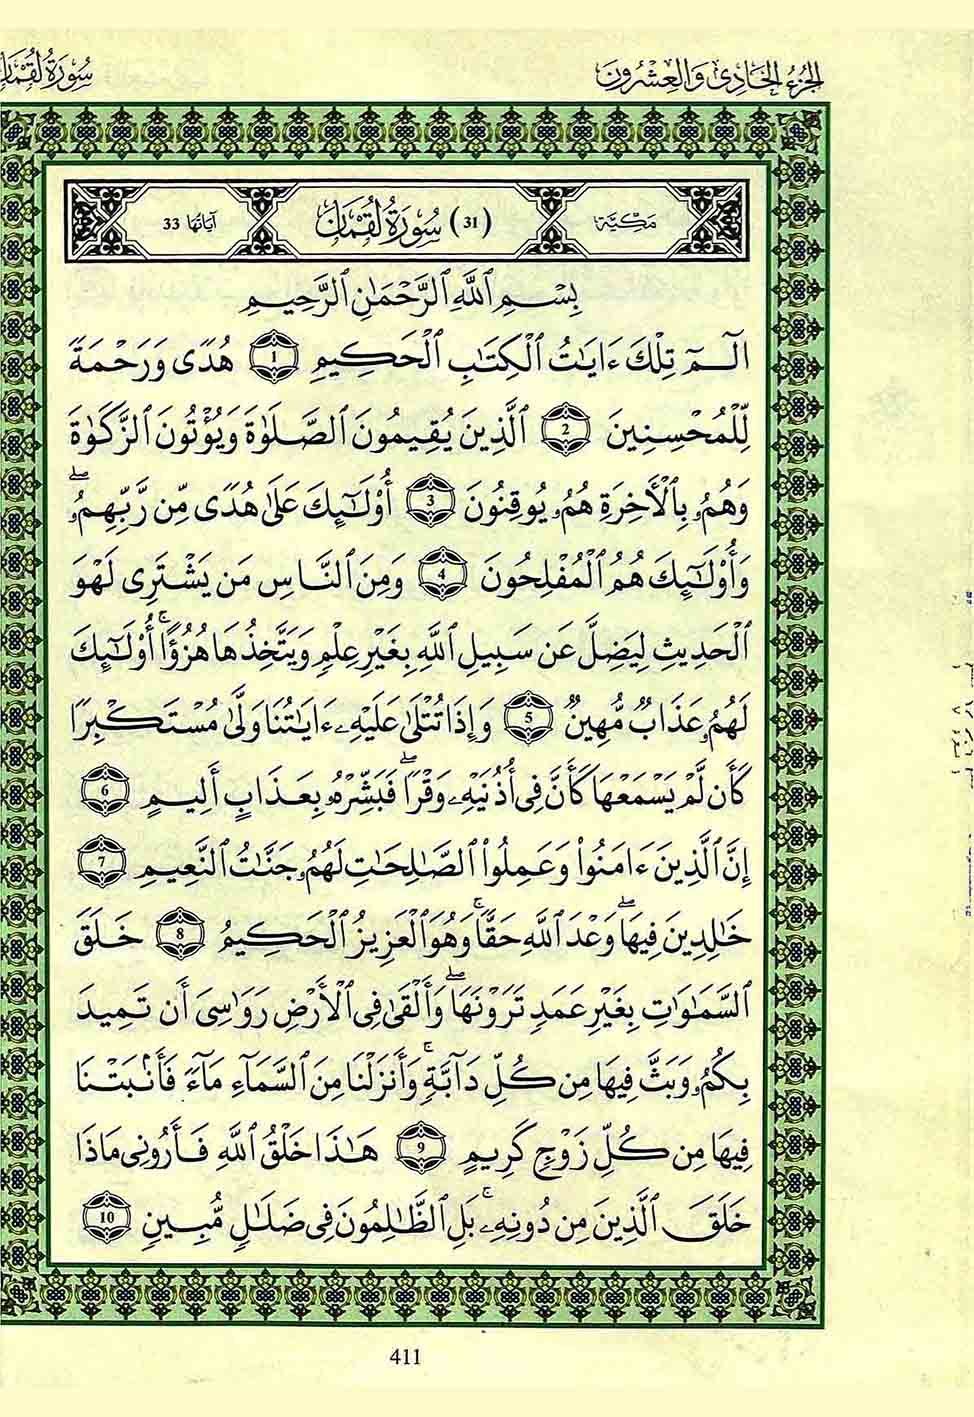 الجزء الحادي والعشرون سورة لقمان
مكية (31) سورة لقمان آياتها 33
بِسْمِ ٱللَّهِ ٱلرَّحْمَٰنِ ٱلرَّحِيمِ
الٓمٓ تِلْكَ ءَايَٰتُ ٱلْكِتَٰبِ ٱلْحَكِيمِ 1 هُدًى وَرَحْمَةً
لِّلْمُحْسِنِينَ 2 ٱلَّذِينَ يُقِيمُونَ ٱلصَّلَوٰةَ وَيُؤْتُونَ ٱلزَّكَوٰةَ
وَهُمُۥ بِٱلْأَخِرَةِ هُمُۥ يُوقِنُونَ 3 أُوْلَٰٓئِكَ عَلَىٰ هُدًى مِّن رَّبِّهِمُۥۖ
وَأُوْلَٰٓئِكَ هُمُ ٱلْمُفْلِحُونَ 4 وَمِنَ ٱلنَّاسِ مَن يَشْتَرِى لَهْوَ
ٱلْحَدِيثِ لِيَضِلَّ عَن سَبِيلِ ٱللَّهِ بِغَيْرِ عِلْمٍ وَيَتَّخِذُهَا هُزُؤًاۚ أُوْلَٰٓئِكَ
لَهُمُۥ عَذَابٌ مُّهِينٌ 5 وَإِذَا تُتْلَىٰ عَلَيْهِۦ ءَايَٰتُنَا وَلَّىٰ مُسْتَكْبِرًا
كَأَن لَّمْ يَسْمَعْهَا كَأَنَّ فِى أُذُنَيْهِۦ وَقْرًاۖ فَبَشِّرْهُۥ بِعَذَابٍ أَلِيمٍ 6
إِنَّ ٱلَّذِينَ ءَامَنُوا۟ وَعَمِلُوا۟ ٱلصَّٰلِحَٰتِ لَهُمُۥ جَنَّٰتُ ٱلنَّعِيمِ 7
خَٰلِدِينَ فِيهَاۖ وَعْدَ ٱللَّهِ حَقًّاۚ وَهُوَ ٱلْعَزِيزُ ٱلْحَكِيمُ 8 خَلَقَ
ٱلسَّمَٰوَٰتِ بِغَيْرِ عَمَدٍ تَرَوْنَهَاۖ وَأَلْقَىٰ فِى ٱلْأَرْضِ رَوَٰسِىَ أَن تَمِيدَ
بِكُمُۥ وَبَثَّ فِيهَا مِن كُلِّ دَآبَّةٍۚ وَأَنزَلْنَا مِنَ ٱلسَّمَآءِ مَآءً فَأَنۢبَتْنَا
فِيهَا مِن كُلِّ زَوْجٍ كَرِيمٍ 9 هَٰذَا خَلْقُ ٱللَّهِ فَأَرُونِى مَاذَا
خَلَقَ ٱلَّذِينَ مِن دُونِهِۦۚ بَلِ ٱلظَّٰلِمُونَ فِى ضَلَٰلٍ مُّبِينٍ 10
411